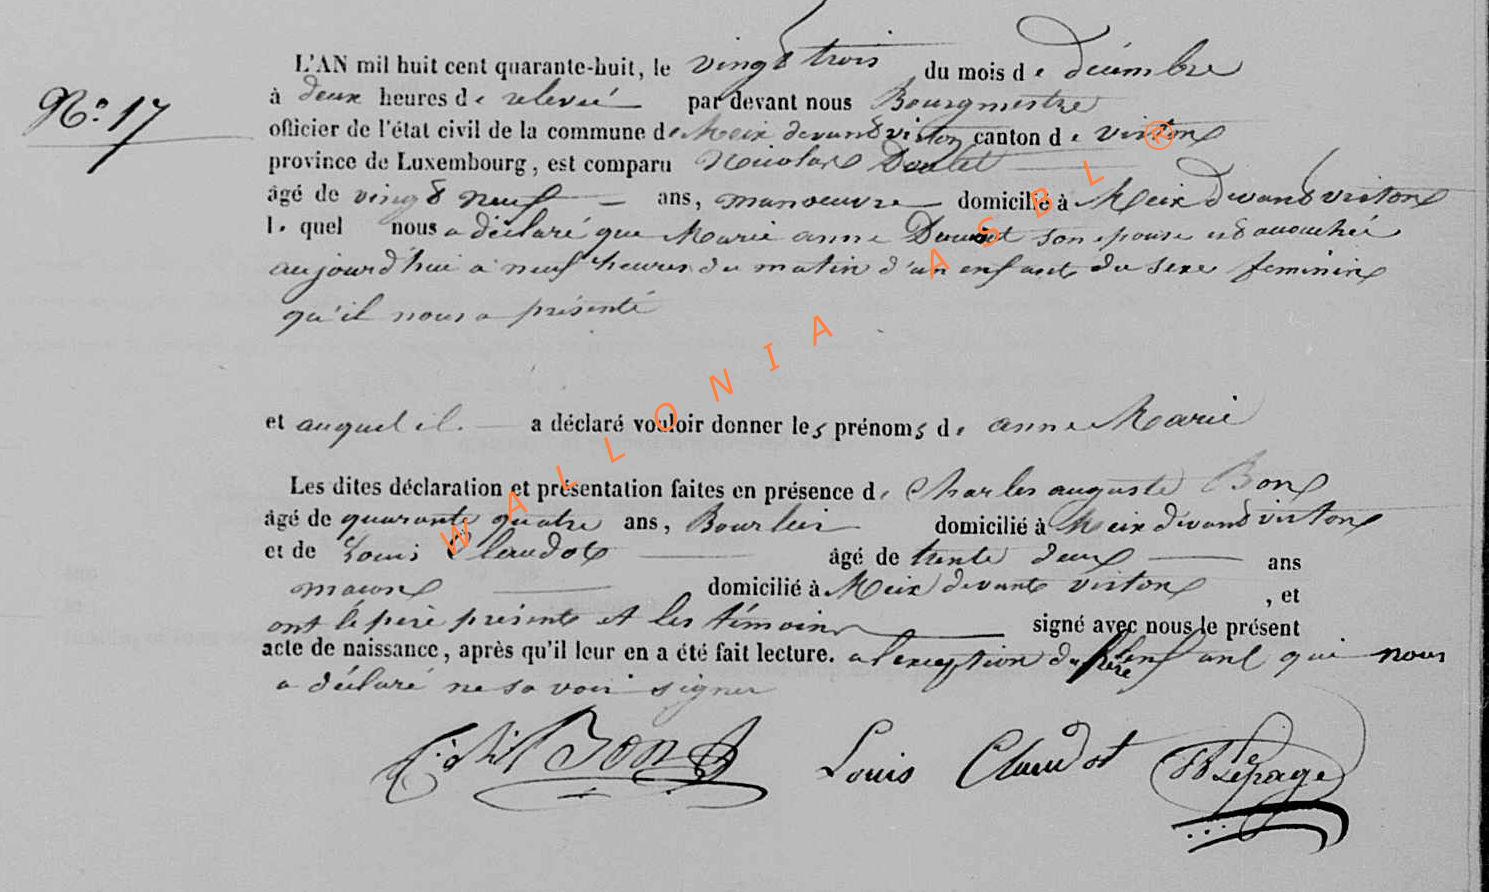 N° 17
L'AN mil huit cent quarante-huit, le vingt trois du mois de décembre
à deux heures de relevée par devant nous Bourgmestre
officier de l'état civil de la commune de Meix devant virton canton de virton
province de Luxembourg, est comparu Nicolas
âgé de vingt neuf ans, manoeuvre domicilié à Meix devant virton
lequel nous a déclaré que Marie anne son epouse est accouchée
aujourd'hui à neuf heures du matin d'un enfant du sexe feminin
qu'il nous a présenté
et auquel il a déclaré vouloir donner les prénoms de anne Marie
Les dites déclaration et présentation faites en présence de Charles auguste Bon
âgé de quarante quatre ans, domicilié à Meix devant virton
et de Louis Claudot âgé de trente deux ans
maçon domicilié à Meix devant virton, et
ont le père présent et les témoins signé avec nous le présent
acte de naissance, après qu'il leur en a été fait lecture. a l'exception du père l'enfant qui nous
a déclaré ne savoir signer
Bon Louis Claudot Lepage
WALLONIA ASBL ®